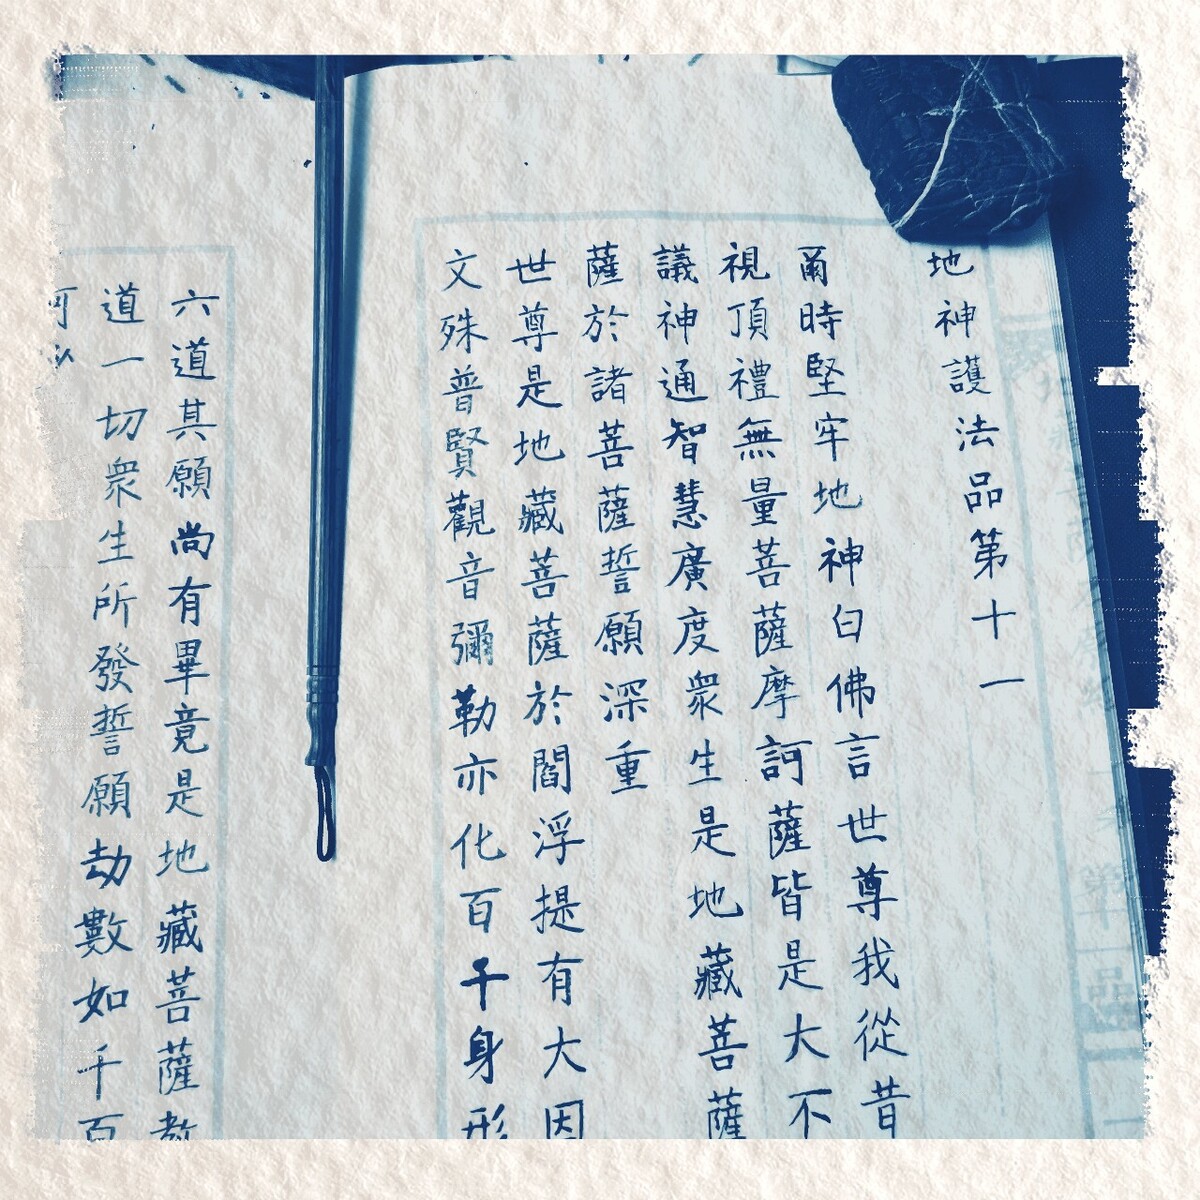 地神護法品第十一
爾時堅牢地神白佛言世尊我從昔
視頂禮無量菩薩摩訶薩皆是大不
議神通智慧廣度眾生是地藏菩薩
薩於諸菩薩誓願深重
世尊是地藏菩薩於閻浮提有大因
文殊普賢觀音彌勒亦化百千身形
六道其願尚有畢竟是地藏菩薩教
道一切眾生所發誓願劫數如千百
河